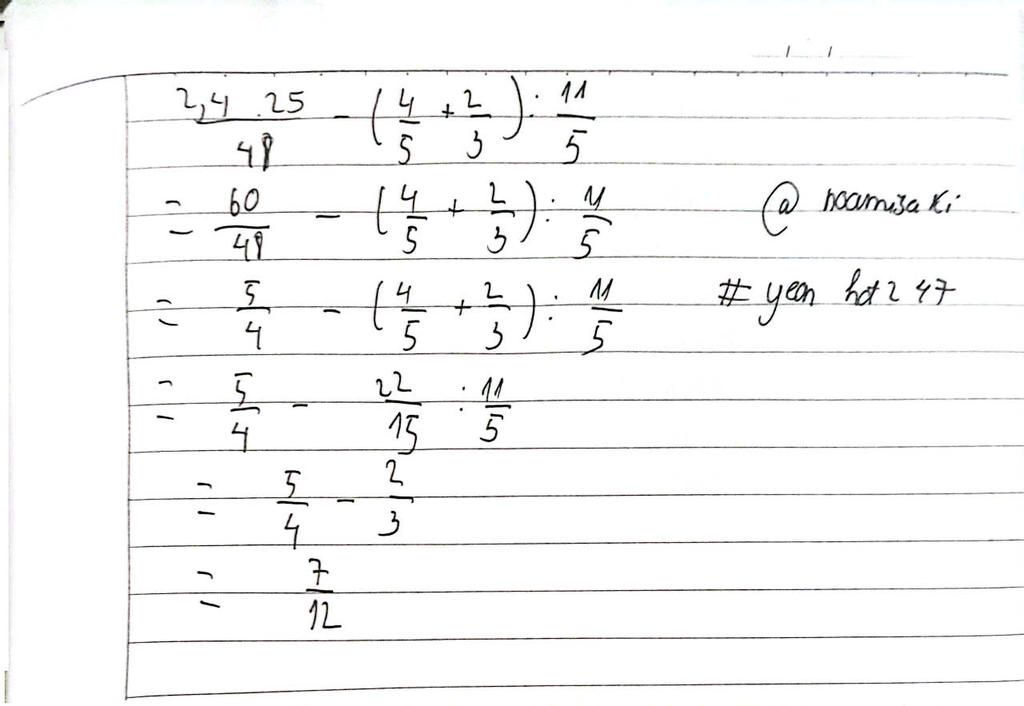 2,4 . 25/48 - (4/5 + 2/3) : 11/5
= 60/48 - (4/5 + 2/3) : 11/5 @ noamisaki
= 5/4 - (4/5 + 2/3) : 11/5 # yeon hot 247
= 5/4 - 22/15 : 11/5
= 5/4 - 2/3
= 7/12